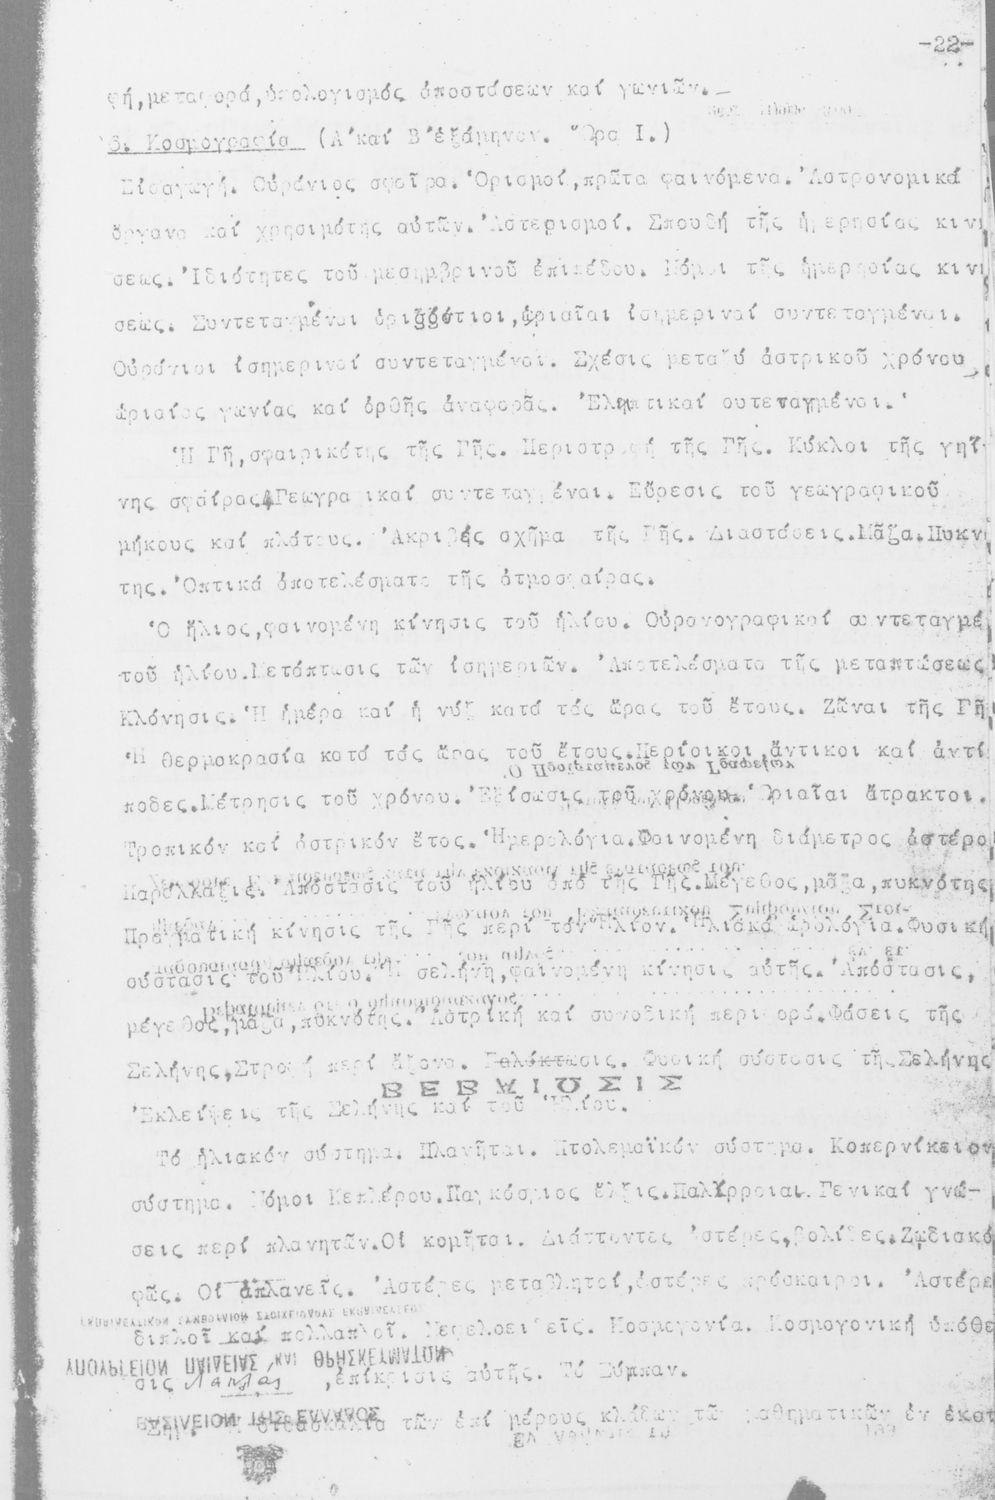 -22-
φή,μεταφορά,ὑπολογισμός ἀποστάσεων καί γωνιῶν.
δ. Κοσμογραφία (Α΄καί Β΄ἑξάμηνον. Ὥρα Ι.)
Εἰσαγωγή. Οὐράνιος σφαῖρα. Ὁρισμοί,πρῶτα φαινόμενα. Ἀστρονομικά
ὄργανα καί χρησιμότης αὐτῶν. Ἀστερισμοί. Σπουδή τῆς ἡμερησίας κινή
σεως. Ἰδιότητες τοῦ μεσημβρινοῦ ἐπιπέδου. Νόμοι τῆς ἡμερησίας κινή
σεως. Συντεταγμέναι ὁριζόντιοι,ὡριαῖαι ἰσημεριναί συντεταγμέναι.
Οὐράνιοι ἰσημεριναί συντεταγμέναι. Σχέσις μεταξύ ἀστρικοῦ χρόνου,
ὡριαίας γωνίας καί ὀρθῆς ἀναφορᾶς.
Ἡ Γῆ,σφαιρικότης τῆς Γῆς. Περιστροφή τῆς Γῆς. Κύκλοι τῆς γηΐ
νης σφαίρας. Γεωγραφικαί συντεταγμέναι. Εὕρεσις τοῦ γεωγραφικοῦ
μήκους καί πλάτους. Ἀκριβές σχῆμα τῆς Γῆς. Διαστάσεις.Μᾶζα.Πυκν
της. Ὀπτικά ἀποτελέσματα τῆς ἀτμοσφαίρας.
Ὁ ἥλιος,φαινομένη κίνησις τοῦ ἡλίου. Οὐρανογραφικαί συντεταγμέ
τοῦ ἡλίου.Μετάπτωσις τῶν ἰσημεριῶν. Ἀποτελέσματα τῆς μεταπτώσεως
Κλόνησις. Ἡ ἡμέρα καί ἡ νύξ κατά τάς ὥρας τοῦ ἔτους. Ζῶναι τῆς Γῆ
Ἡ θερμοκρασία κατά τάς ὥρας τοῦ ἔτους.Περίοικοι,ἄντικοι καί ἀντί
ποδες.Μέτρησις τοῦ χρόνου. Ἐξίσωσις τοῦ χρόνου. Ὡριαῖαι ἄτρακτοι.
Τροπικόν καί ἀστρικόν ἔτος. Ἡμερολόγια.Φαινομένη διάμετρος ἀστέρο
Παράλλαξις. Ἀπόστασις τοῦ ἡλίου ἀπό τῆς Γῆς.Μέγεθος,μᾶζα,πυκνότης
Πραγματική κίνησις τῆς Γῆς περί τόν Ἥλιον. Ἡλιακά ὡρολόγια.Φυσική
σύστασις τοῦ Ἡλίου. Ἡ σελήνη,φαινομένη κίνησις αὐτῆς. Ἀπόστασις,
μέγεθος,μᾶζα,πυκνότης. Ἀστρική καί συνοδική περιφορά.Φάσεις τῆς
Σελήνης,Στροφή περί ἄξονα. Φυσική σύστασις τῆς Σελήνης
ΒΕΒΑΙΩΣΙΣ
Ἐκλείψεις τῆς Σελήνης καί τοῦ Ἡλίου.
Τό ἡλιακόν σύστημα. Πλανῆται. Πτολεμαϊκόν σύστημα. Κοπερνίκειον
σύστημα. Νόμοι Κεπλέρου.Παγκόσμιος ἕλξις.Παλίρροιαι.Γενικαί γνώ-
σεις περί πλανητῶν.Οἱ κομῆται. Διάττοντες ἀστέρες,βολίδες.Ζῳδιακό
φῶς. Οἱ ἀπλανεῖς. Ἀστέρες μεταβλητοί,ἀστέρες πρόσκαιροι. Ἀστέρε
διπλοῖ καί πολλαπλοῖ. Νεφελοειδεῖς. Κοσμογονία. Κοσμογονική ὑπόθε
ΥΠΟΥΡΓΕΙΟΝ ΠΑΙΔΕΙΑΣ ΚΑΙ ΘΡΗΣΚΕΥΜΑΤΩΝ
σις Λαπλάς ,ἐπίκρισις αὐτῆς. Τό Σύμπαν.
ΒΑΣΙΛΕΙΟΝ ΤΗΣ ΕΛΛΑΔΟΣ
Σημ. Ἡ διδασκαλία τῶν ἐπί μέρους κλάδων τῶν μαθηματικῶν ἐν ἑκατ